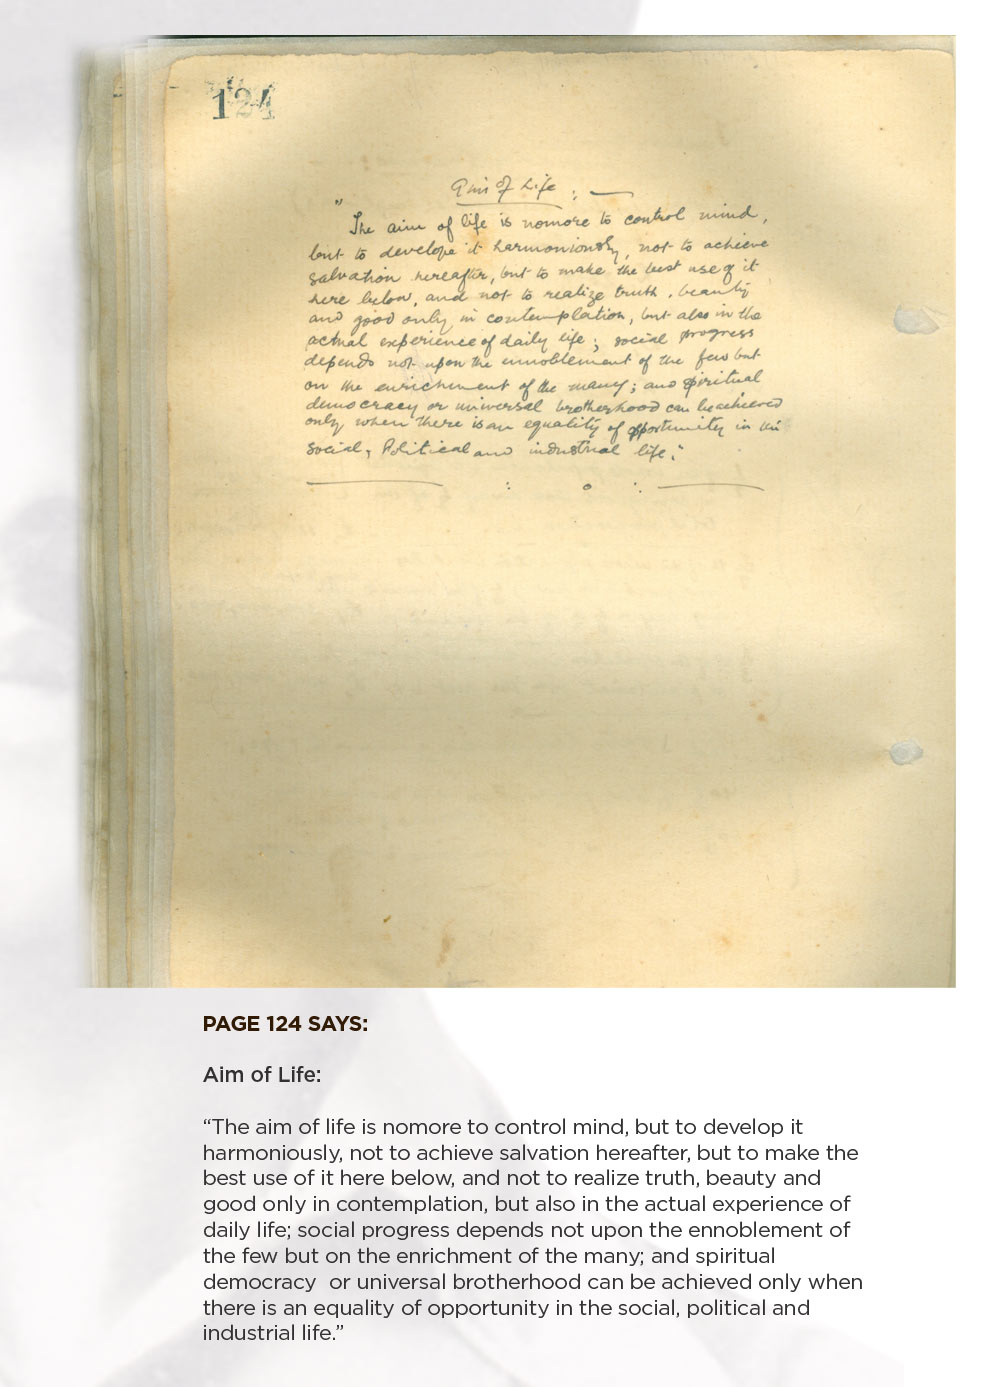 124
Aim of Life : —
"The aim of life is nomore to control mind,
but to develope it harmoniously, not to achieve
salvation hereafter, but to make the best use of it
here below, and not to realize truth, beauty
and good only in contemplation, but also in the
actual experience of daily life; social progress
depends not upon the ennoblement of the few but
on the enrichment of the many; and spiritual
democracy or universal brotherhood can be achieved
only when there is an equality of opportunity in the
social, Political and industrial life."
PAGE 124 SAYS:
Aim of Life:
“The aim of life is nomore to control mind, but to develop it
harmoniously, not to achieve salvation hereafter, but to make the
best use of it here below, and not to realize truth, beauty and
good only in contemplation, but also in the actual experience of
daily life; social progress depends not upon the ennoblement of
the few but on the enrichment of the many; and spiritual
democracy  or universal brotherhood can be achieved only when
there is an equality of opportunity in the social, political and
industrial life.”